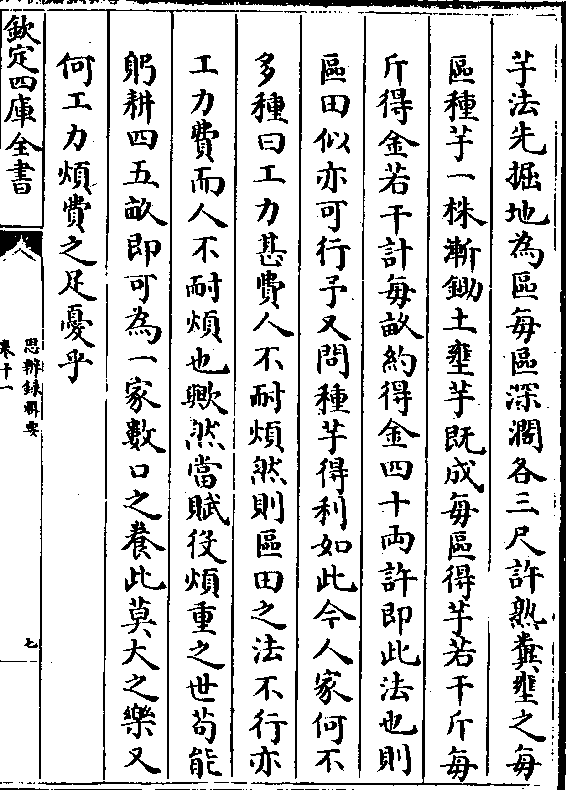 芋法先掘地為區每區深濶各三尺許熟糞壅之每
區種芋一株漸鋤土壅芋既成每區得芋若干斤每
斤得金若干計每畝約得金四十兩許即此法也則
區田似亦可行予又問種芋得利如此今人家何不
多種曰工力甚費人不耐煩然則區田之法不行亦
工力費而人不耐煩也歟然當賦役煩重之世苟能
躬耕四五畝即可為一家數口之養此莫大之樂又
何工力煩費之足憂乎
欽定四庫全書
思辨録輯要
卷十一
七